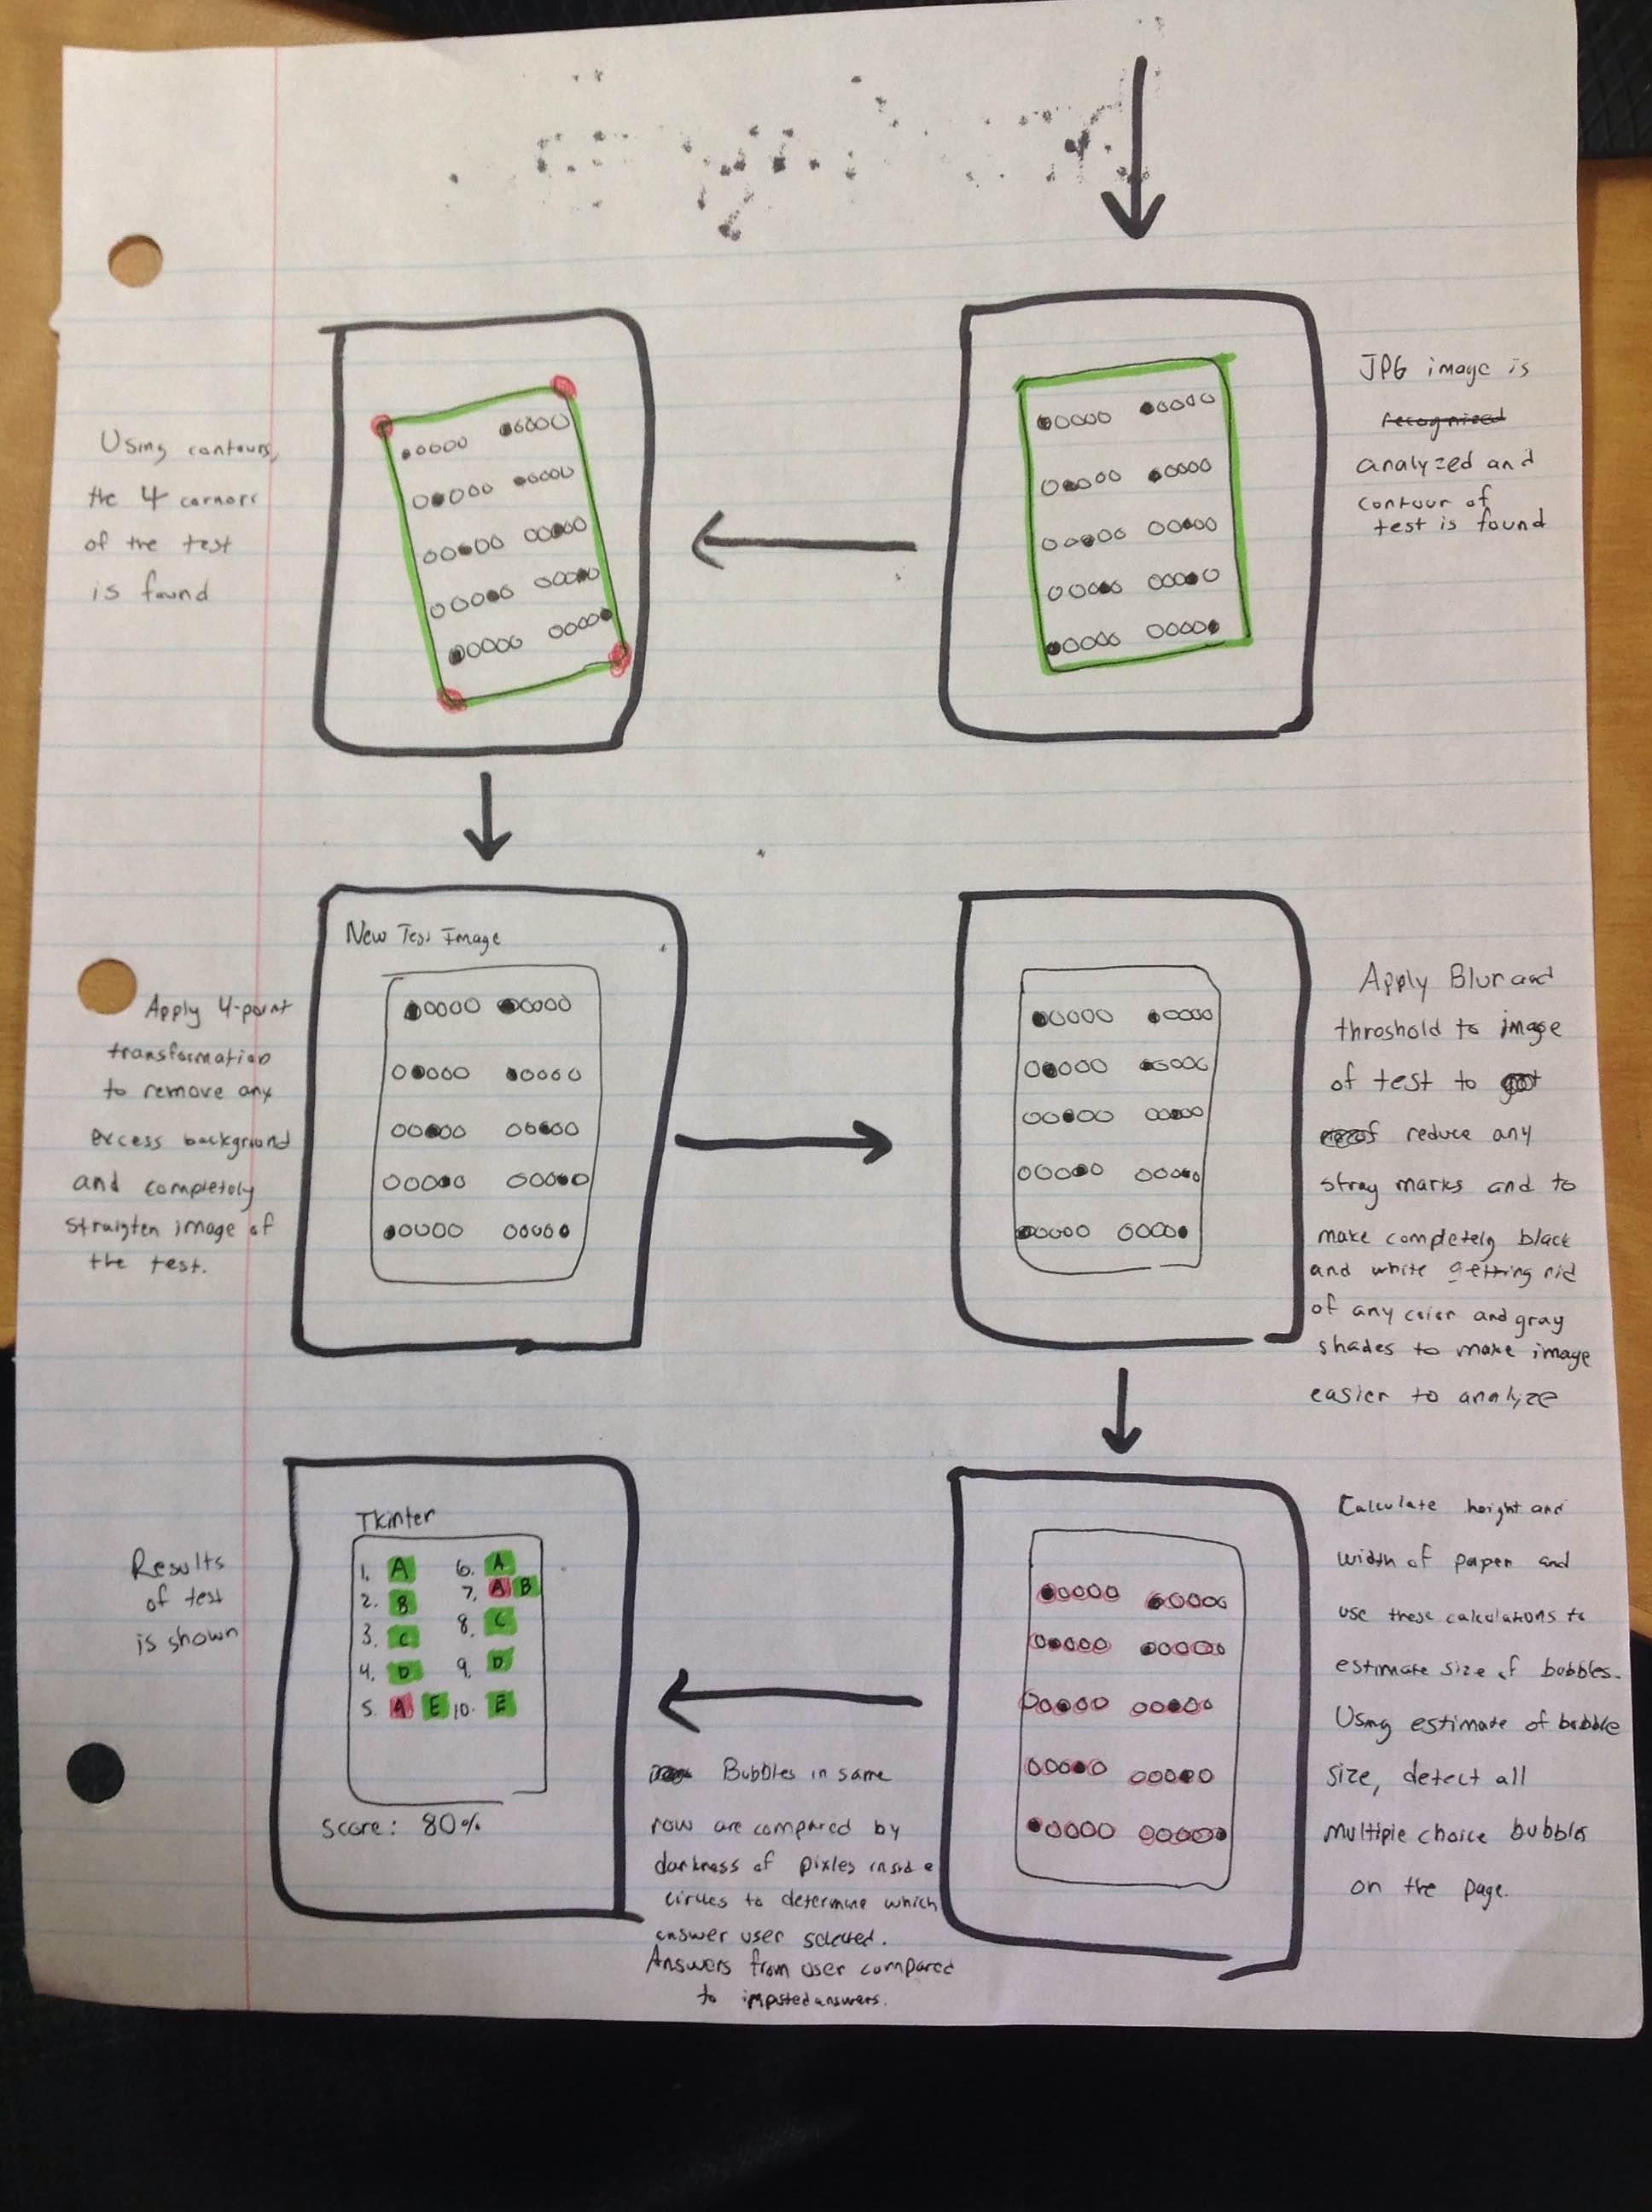 JPG image is
recognized
analyzed and
contour of
test is found
Using contours,
the 4 corners
of the test
is found
New Test Image
Apply 4-point
transformation
to remove any
excess background
and completely
straigten image of
the test.
Apply Blur and
threshold to image
of test to
reduce any
stray marks and to
make completely black
and white getting rid
of any color and gray
shades to make image
easier to analyze
Calculate height and
width of paper and
use these calculations to
estimate size of bubbles.
Using estimate of bubble
size, detect all
multiple choice bubbles
on the page.
Bubbles in same
row are compared by
darkness of pixles inside
circles to determine which
answer user selected.
Answers from user compared
to inputed answers.
Tkinter
1. A 6. A
2. B 7. A B
3. C 8. C
4. D 9. D
5. A E 10. E
Score: 80%
Results
of test
is shown